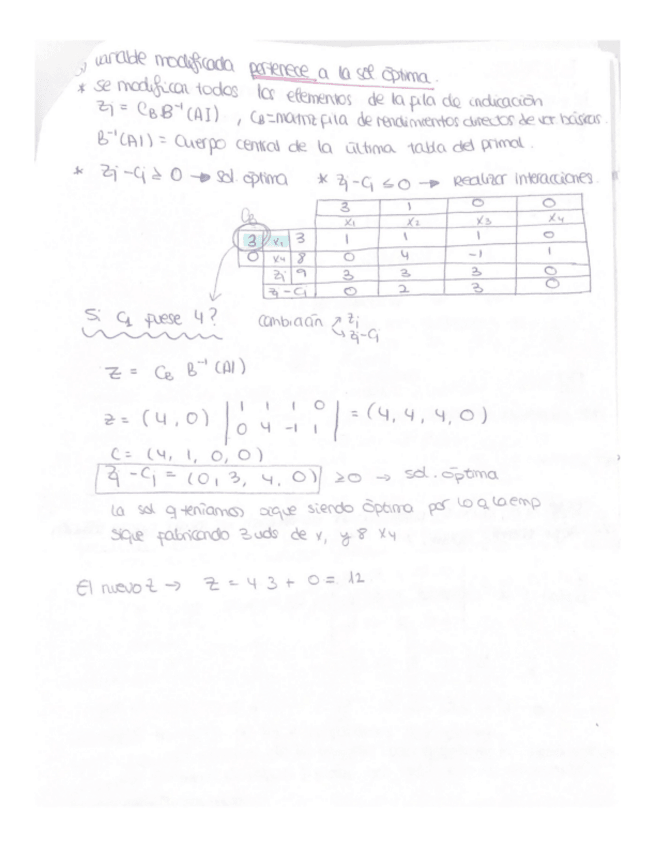 variable modificada pertenece a la sol óptima.
* se modifican todos los elementos de la fila de indicación
Zj = CB B⁻¹(AI), CB = matriz fila de rendimientos directos de var básicas.
B⁻¹(AI) = Cuerpo central de la última tabla del primal.
* Zj - Cj ≥ 0 → sol. óptima * Zj - Cj ≤ 0 → Realizar interacciones.
CB
3 1 0 0
x1 x2 x3 x4
3 x1 3 1 1 1 0
0 x4 8 0 4 -1 1
Zj 9 3 3 3 0
Zj - Cj 0 2 3 0
Si C1 fuese 4? Cambiarán Zj
Zj-Cj
Z = CB B⁻¹(AI)
Z = (4,0) | 1 1 1 0 | = (4, 4, 4, 0)
0 4 -1 1
C = (4, 1, 0, 0)
Zj - Cj = (0, 3, 4, 0) ≥ 0 → sol. óptima
La sol q teníamos sigue siendo óptima por lo q la emp
sigue fabricando 3 uds de x1 y 8 x4
El nuevo Z → Z = 4 3 + 0 = 12